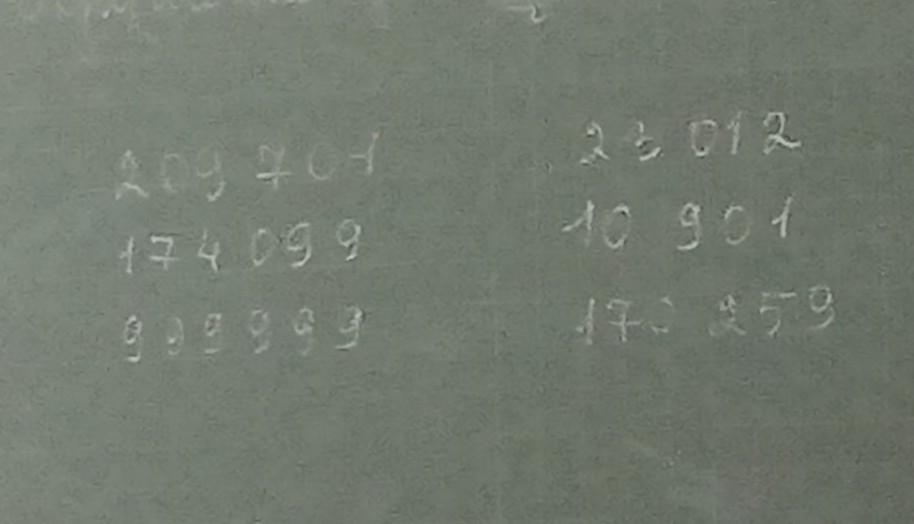 209 701
174 099
999 999
23 012
10 901
259